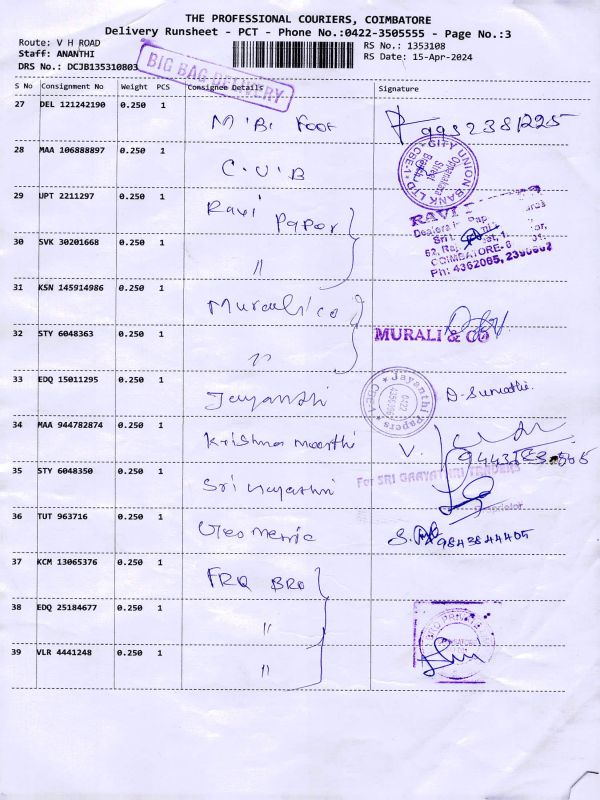 THE PROFESSIONAL COURIERS, COIMBATORE
Delivery Runsheet - PCT - Phone No.:0422-3505555 - Page No.:3
Route: V H ROAD
RS No.: 1353108
Staff: ANANTHI
RS Date: 15-Apr-2024
DRS No.: DCJB135310803
BIG BAG DELIVERY
S No Consignment No Weight PCS Consignee Details Signature
27 DEL 121242190 0.250 1
9952381225
28 MAA 106888897 0.250 1 C.U.B
CITY UNION BANK LTD
CBE-1
29 UPT 2211297 0.250 1 Ravi Paper
RAVI
30 SVK 30201668 0.250 1 "
COIMBATORE-
Ph: 4362065,
31 KSN 145914986 0.250 1 Murali co
32 STY 6048363 0.250 1 "
MURALI & CO
33 EDQ 15011295 0.250 1 Jayanthi
Jayanthi Papers
CBE-1
D. Sumathi.
34 MAA 944782874 0.250 1 Krishna moorthi V.
35 STY 6048350 0.250 1 Sri
For SRI GAAYATHRI TRADERS
36 TUT 963716 0.250 1
9843844405
37 KCM 13065376 0.250 1 FRQ BRO
38 EDQ 25184677 0.250 1 "
39 VLR 4441248 0.250 1 "